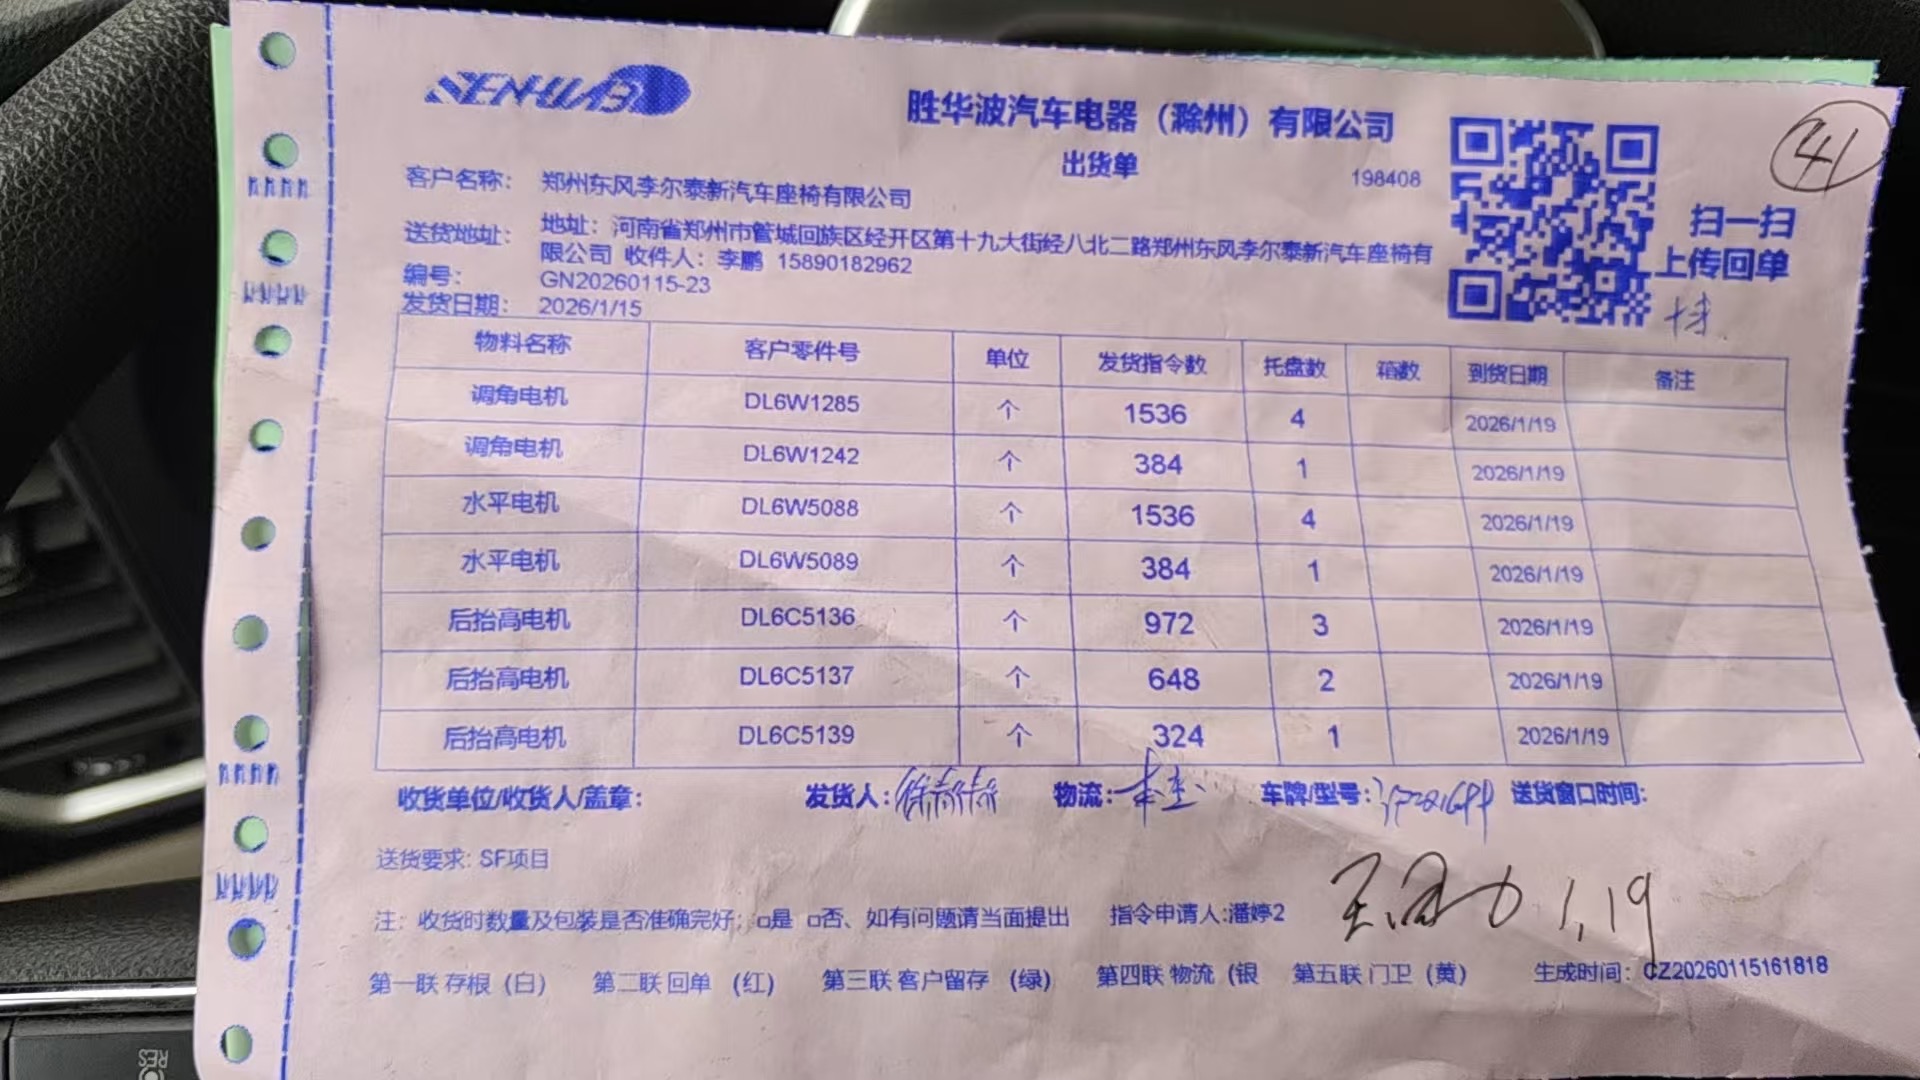 SENHUAB
胜华波汽车电器（滁州）有限公司
41
出货单
198408
扫一扫
上传回单
客户名称： 郑州东风李尔泰新汽车座椅有限公司
送货地址： 地址：河南省郑州市管城回族区经开区第十九大街经八北二路郑州东风李尔泰新汽车座椅有
限公司 收件人：李鹏 15890182962
编号： GN20260115-23
发货日期： 2026/1/15
物料名称 客户零件号 单位 发货指令数 托盘数 箱数 到货日期 备注
调角电机 DL6W1285 个 1536 4 2026/1/19
调角电机 DL6W1242 个 384 1 2026/1/19
水平电机 DL6W5088 个 1536 4 2026/1/19
水平电机 DL6W5089 个 384 1 2026/1/19
后抬高电机 DL6C5136 个 972 3 2026/1/19
后抬高电机 DL6C5137 个 648 2 2026/1/19
后抬高电机 DL6C5139 个 324 1 2026/1/19
收货单位/收货人/盖章： 发货人： 物流： 车牌/型号： 送货窗口时间：
送货要求: SF项目
1,19
注：收货时数量及包装是否准确完好；□是 □否、如有问题请当面提出 指令申请人:潘婷2
第一联 存根（白） 第二联 回单 （红） 第三联 客户留存 （绿） 第四联 物流（银 第五联 门卫（黄） 生成时间：CZ20260115161818
RES